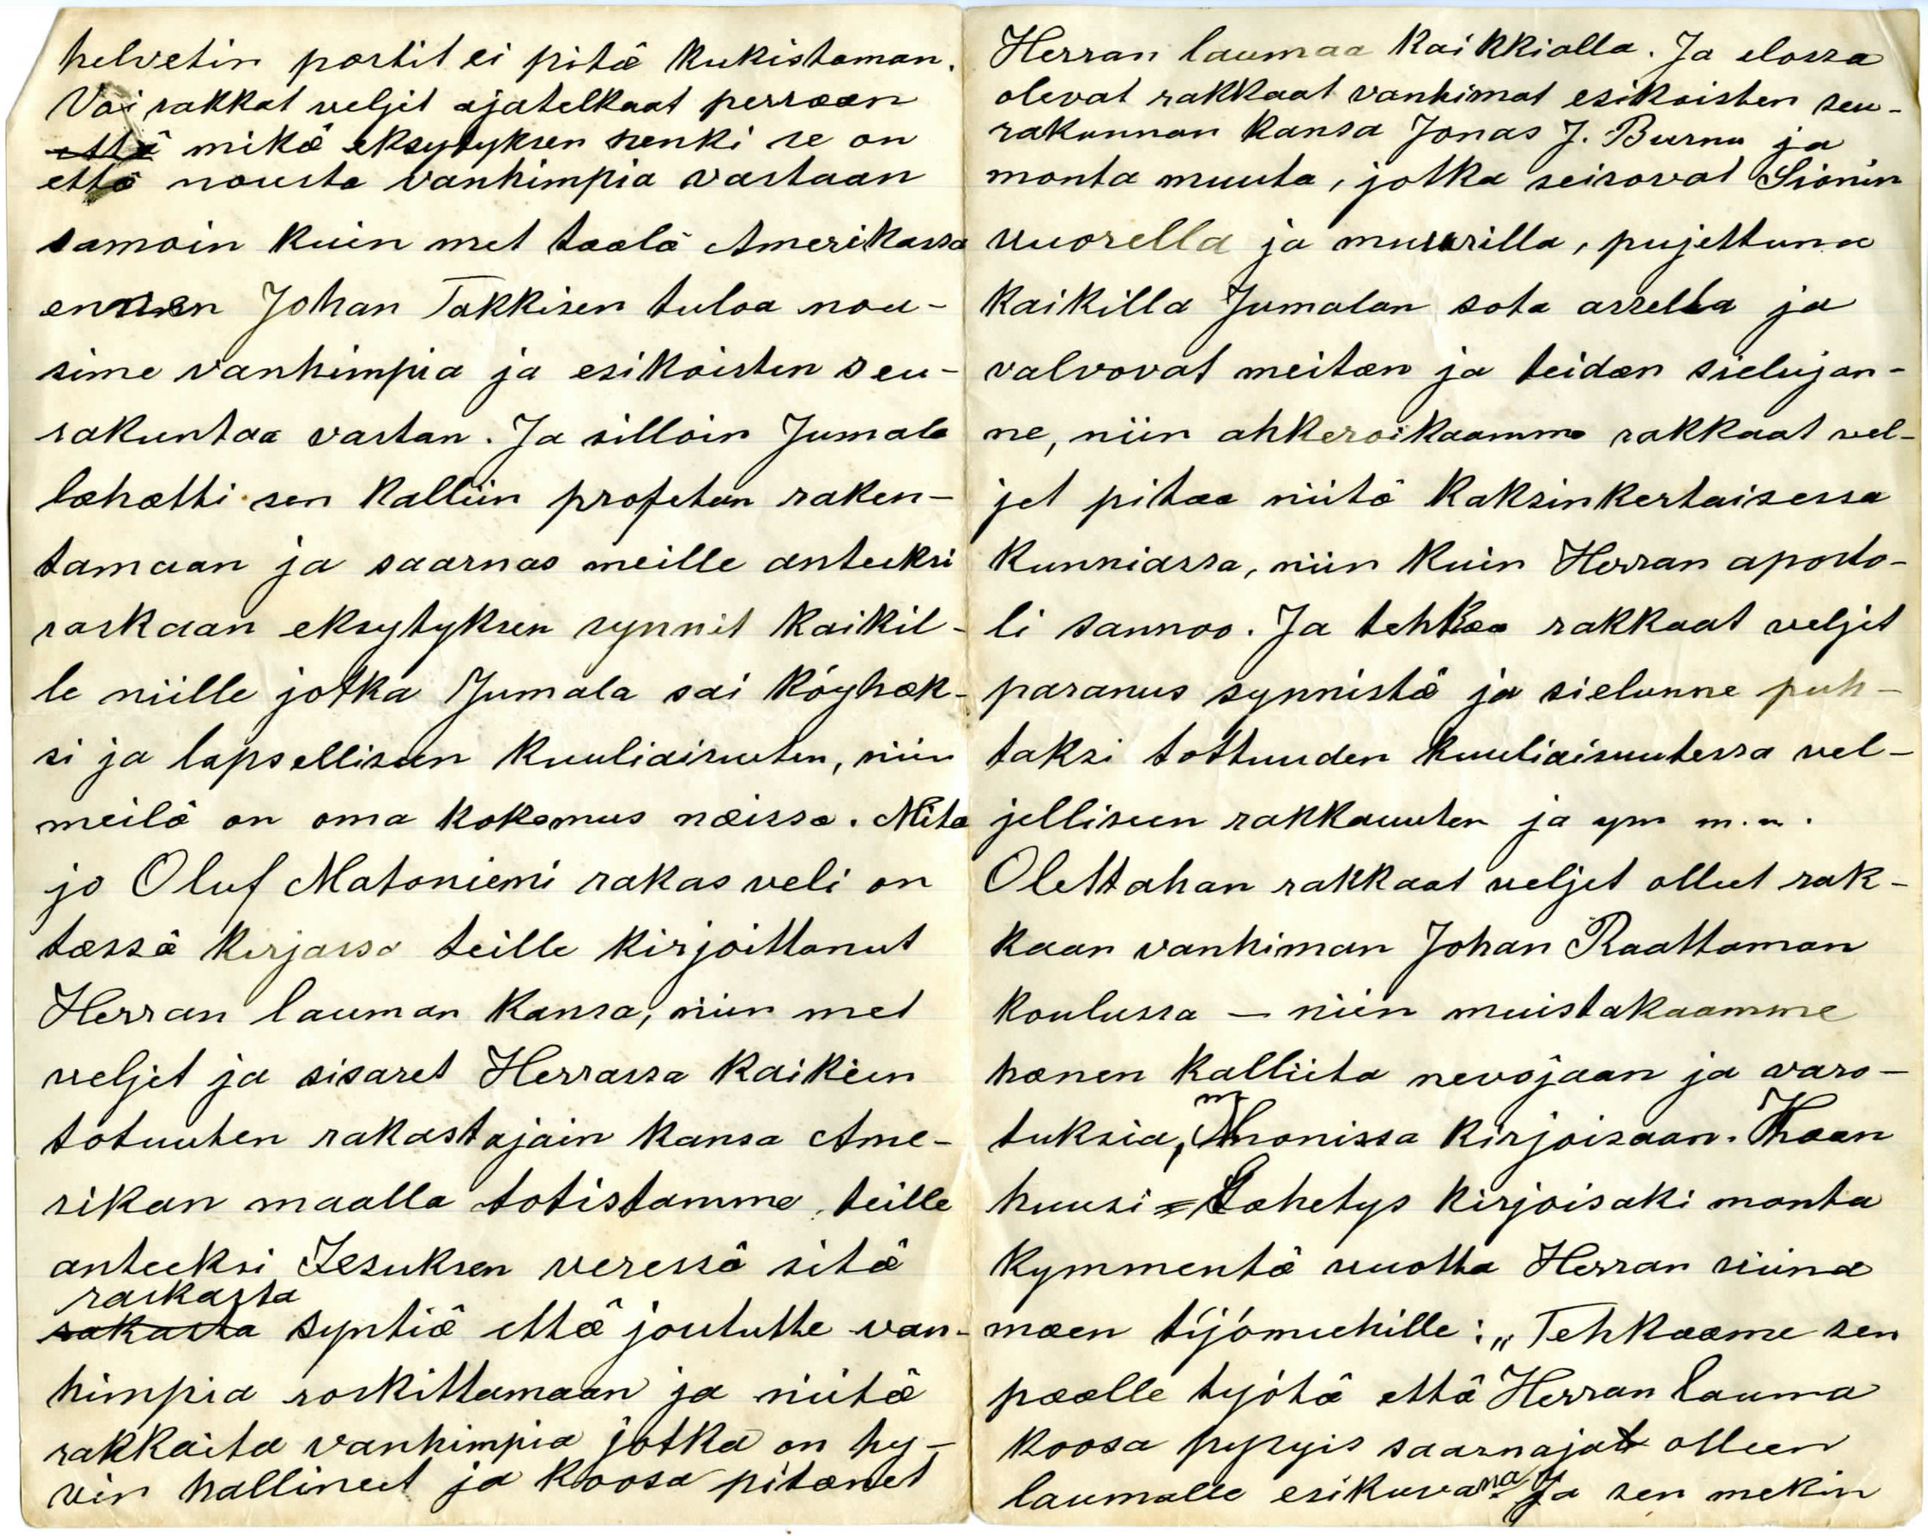 helvetin portit ei pitä kukistaman.
Voi rakkat veljit ajatelkaat perræen
että mikä eksytyksen henki se on
että nousta vanhimpia vastaan
samoin kuin met taalä Amerikassa
ennen Johan Takkisen tuloa nou-
sime vanhimpia ja esikoisten seu-
rakuntaa vastan. Ja silloin Jumala
læhætti sen kalliin profetan raken-
tamaan ja saarnas meille anteeksi
raskaan eksytyksen synnit kaikil-
le niille jotka Jumala sai köyhæk-
si ja lapselliseen kuuliaisuuten, niin
meilä on oma kokemus næissa. Mita
jo Oluf Matoniemi rakas veli on
tæssä kirjassa teille kirjoittanut
Herran lauman kansa, niin met
veljet ja sisaret Herrassa kaikein
totuuten rakastajain kansa Ame-
rikan maalla totistamme teille
anteeksi Jesuksen veressä sitä
raskasta
rakasta syntiä että joututte van-
himpia roskittamaan ja niitä
rakkaita vanhimpia jotka on hy-
vin hallineet ja koosa pitænet
Herran laumaa kaikkialla. Ja elossa
olevat rakkaat vanhimat esikoisten seu-
rakunnan kansa Jonas J. Burnu ja
monta muuta, jotka seisovat Sionin
vuorella ja muurilla, pujettuna
kaikilla Jumalan sota assella ja
valvovat meitæn ja teidæn sielujan-
ne, niin ahkeroikaamme rakkaat vel-
jet pitaa niitä kaksinkertaisessa
kunniassa, niin kuin Herran aposto-
li sannoo. Ja tehkæa rakkaat veljet
paranus synnistä ja sielunne puh-
taksi tottuuden kuuliaisuutessa vel-
jelliseen rakkauuten ja ym m.m.
Olettahan rakkaat veljet olleet rak-
kaan vanhiman Johan Raattaman
koulussa — niin muistakaamme
hænen kalliita nevojaan ja varo-
tuksia, monissa kirjoisaan. Hæan
huusi Læhetys kirjoisaki monta
kymmentä vuotta Herran viina
mæen työmiehille: „Tehkaame sen
pæælle työtä että Herran lauma
koosa pysyis saarnajat olleen
laumalle esikuvana. Ja sen mekin